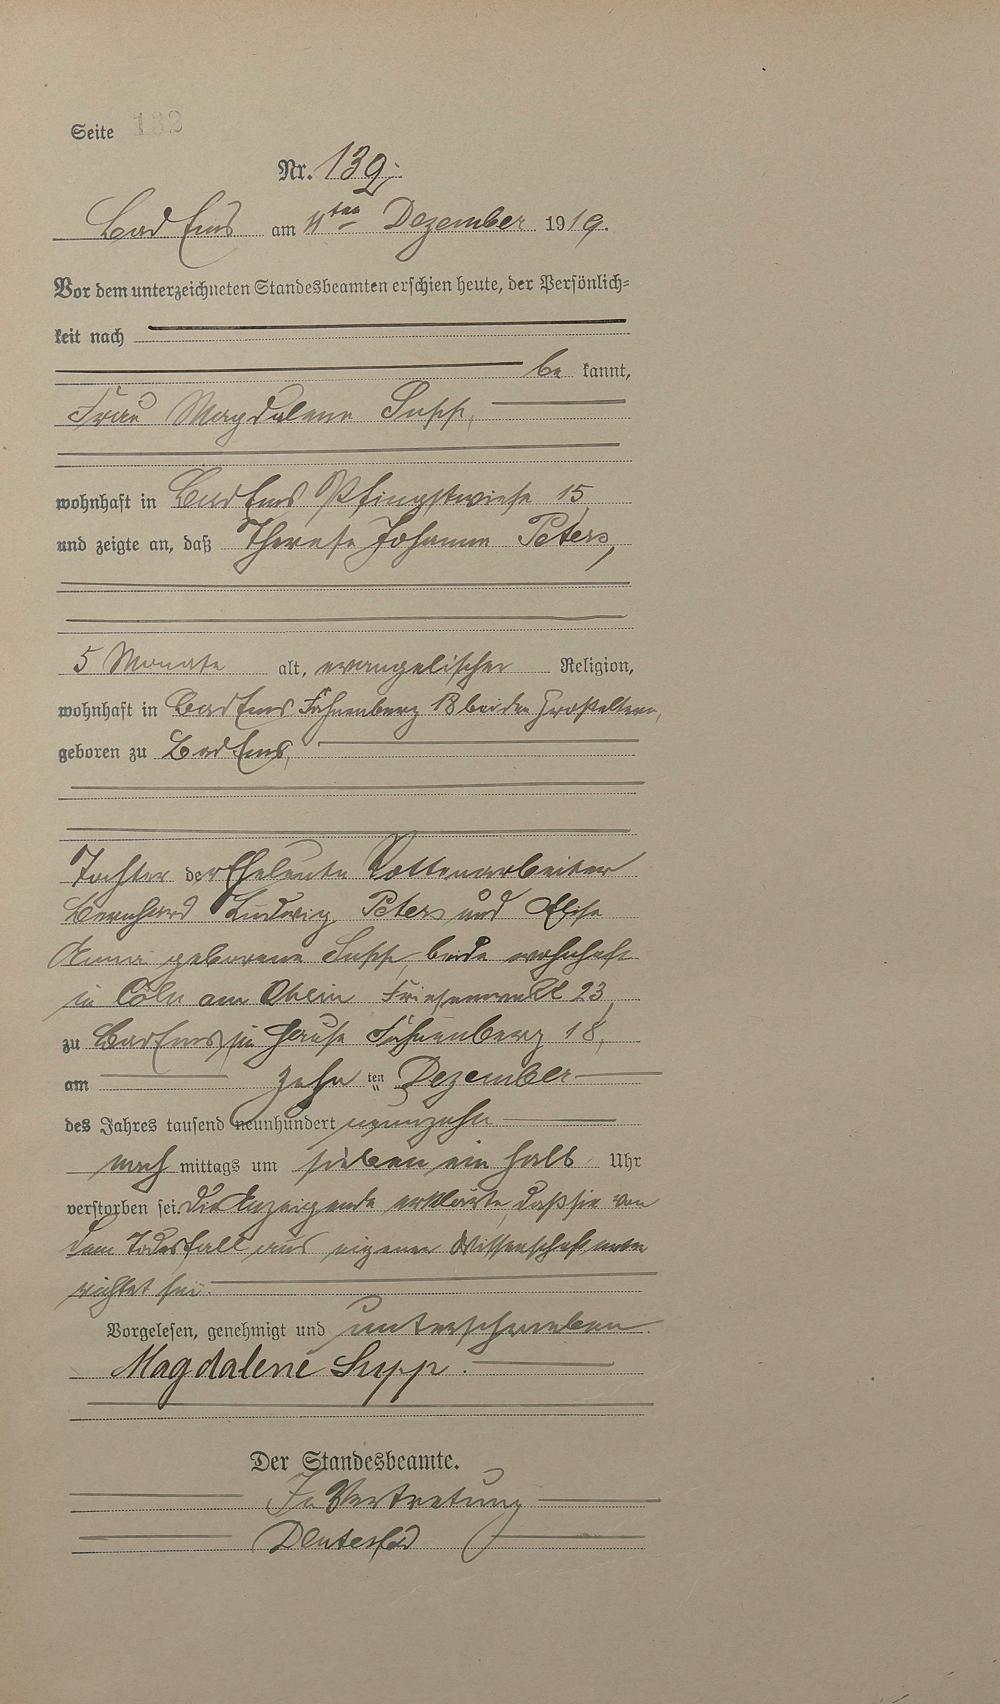 Seite 132
Nr. 139.
Bad Ems am 11ten Dezember 1919.
Vor dem unterzeichneten Standesbeamten erschien heute, der Persönlich-
keit nach
be kannt,
Frau Magdalene Supp,
wohnhaft in Bad Ems Pfingstwiese 15,
und zeigte an, daß Therese Johanne Peters,
5 Monate alt, evangelischer Religion,
wohnhaft in Bad Ems Fahnenberg 18 bei den Großeltern,
geboren zu Bad Ems,
Tochter der Eheleute Rottenarbeiter
Bernhard Ludwig Peters und Elise
Anna geborene Supp, beide wohnhaft
in Cöln am Rhein Friesenwall 23,
zu Bad Ems, im Hause Fahnenberg 18,
am zehn ten Dezember
des Jahres tausend neunhundert neunzehn
nach mittags um sieben ein halb Uhr
verstorben sei. Die Anzeigende erklärte, daß sie von
dem Todesfall aus eigener Wissenschaft unter
richtet sei.
Vorgelesen, genehmigt und unterschrieben.
Magdalene Supp.
Der Standesbeamte.
In Vertretung